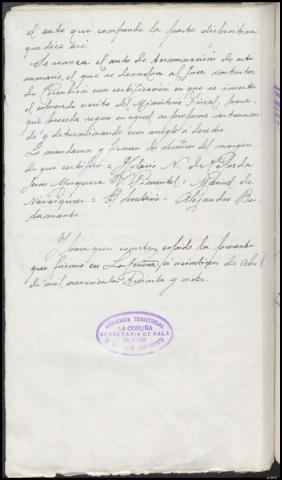 el auto que comprende la parte dispositiva
que dice así:
Se revoca el auto de terminación de este
sumario, el que se devolverá al Juez instructor
de con certificación en que se inserte
el expresado escrito del Ministerio Fiscal, para
que proceda segun en aquel se
do y determinando con arreglo a derecho
Lo mandaron y firman los señores del margen
de que certifico = Hario N. de
Juan Mosquera P. Pimentel = Manuel de
= El Secretario = Alejandro Bus
tamante.
Y para que conste, expido la presente
que firmo en La Coruña, a veintiseis de Abril
de mil novecientos treinta y siete.
AUDIENCIA TERRITORIAL
LA CORUÑA
SECRETARIA DE SALA